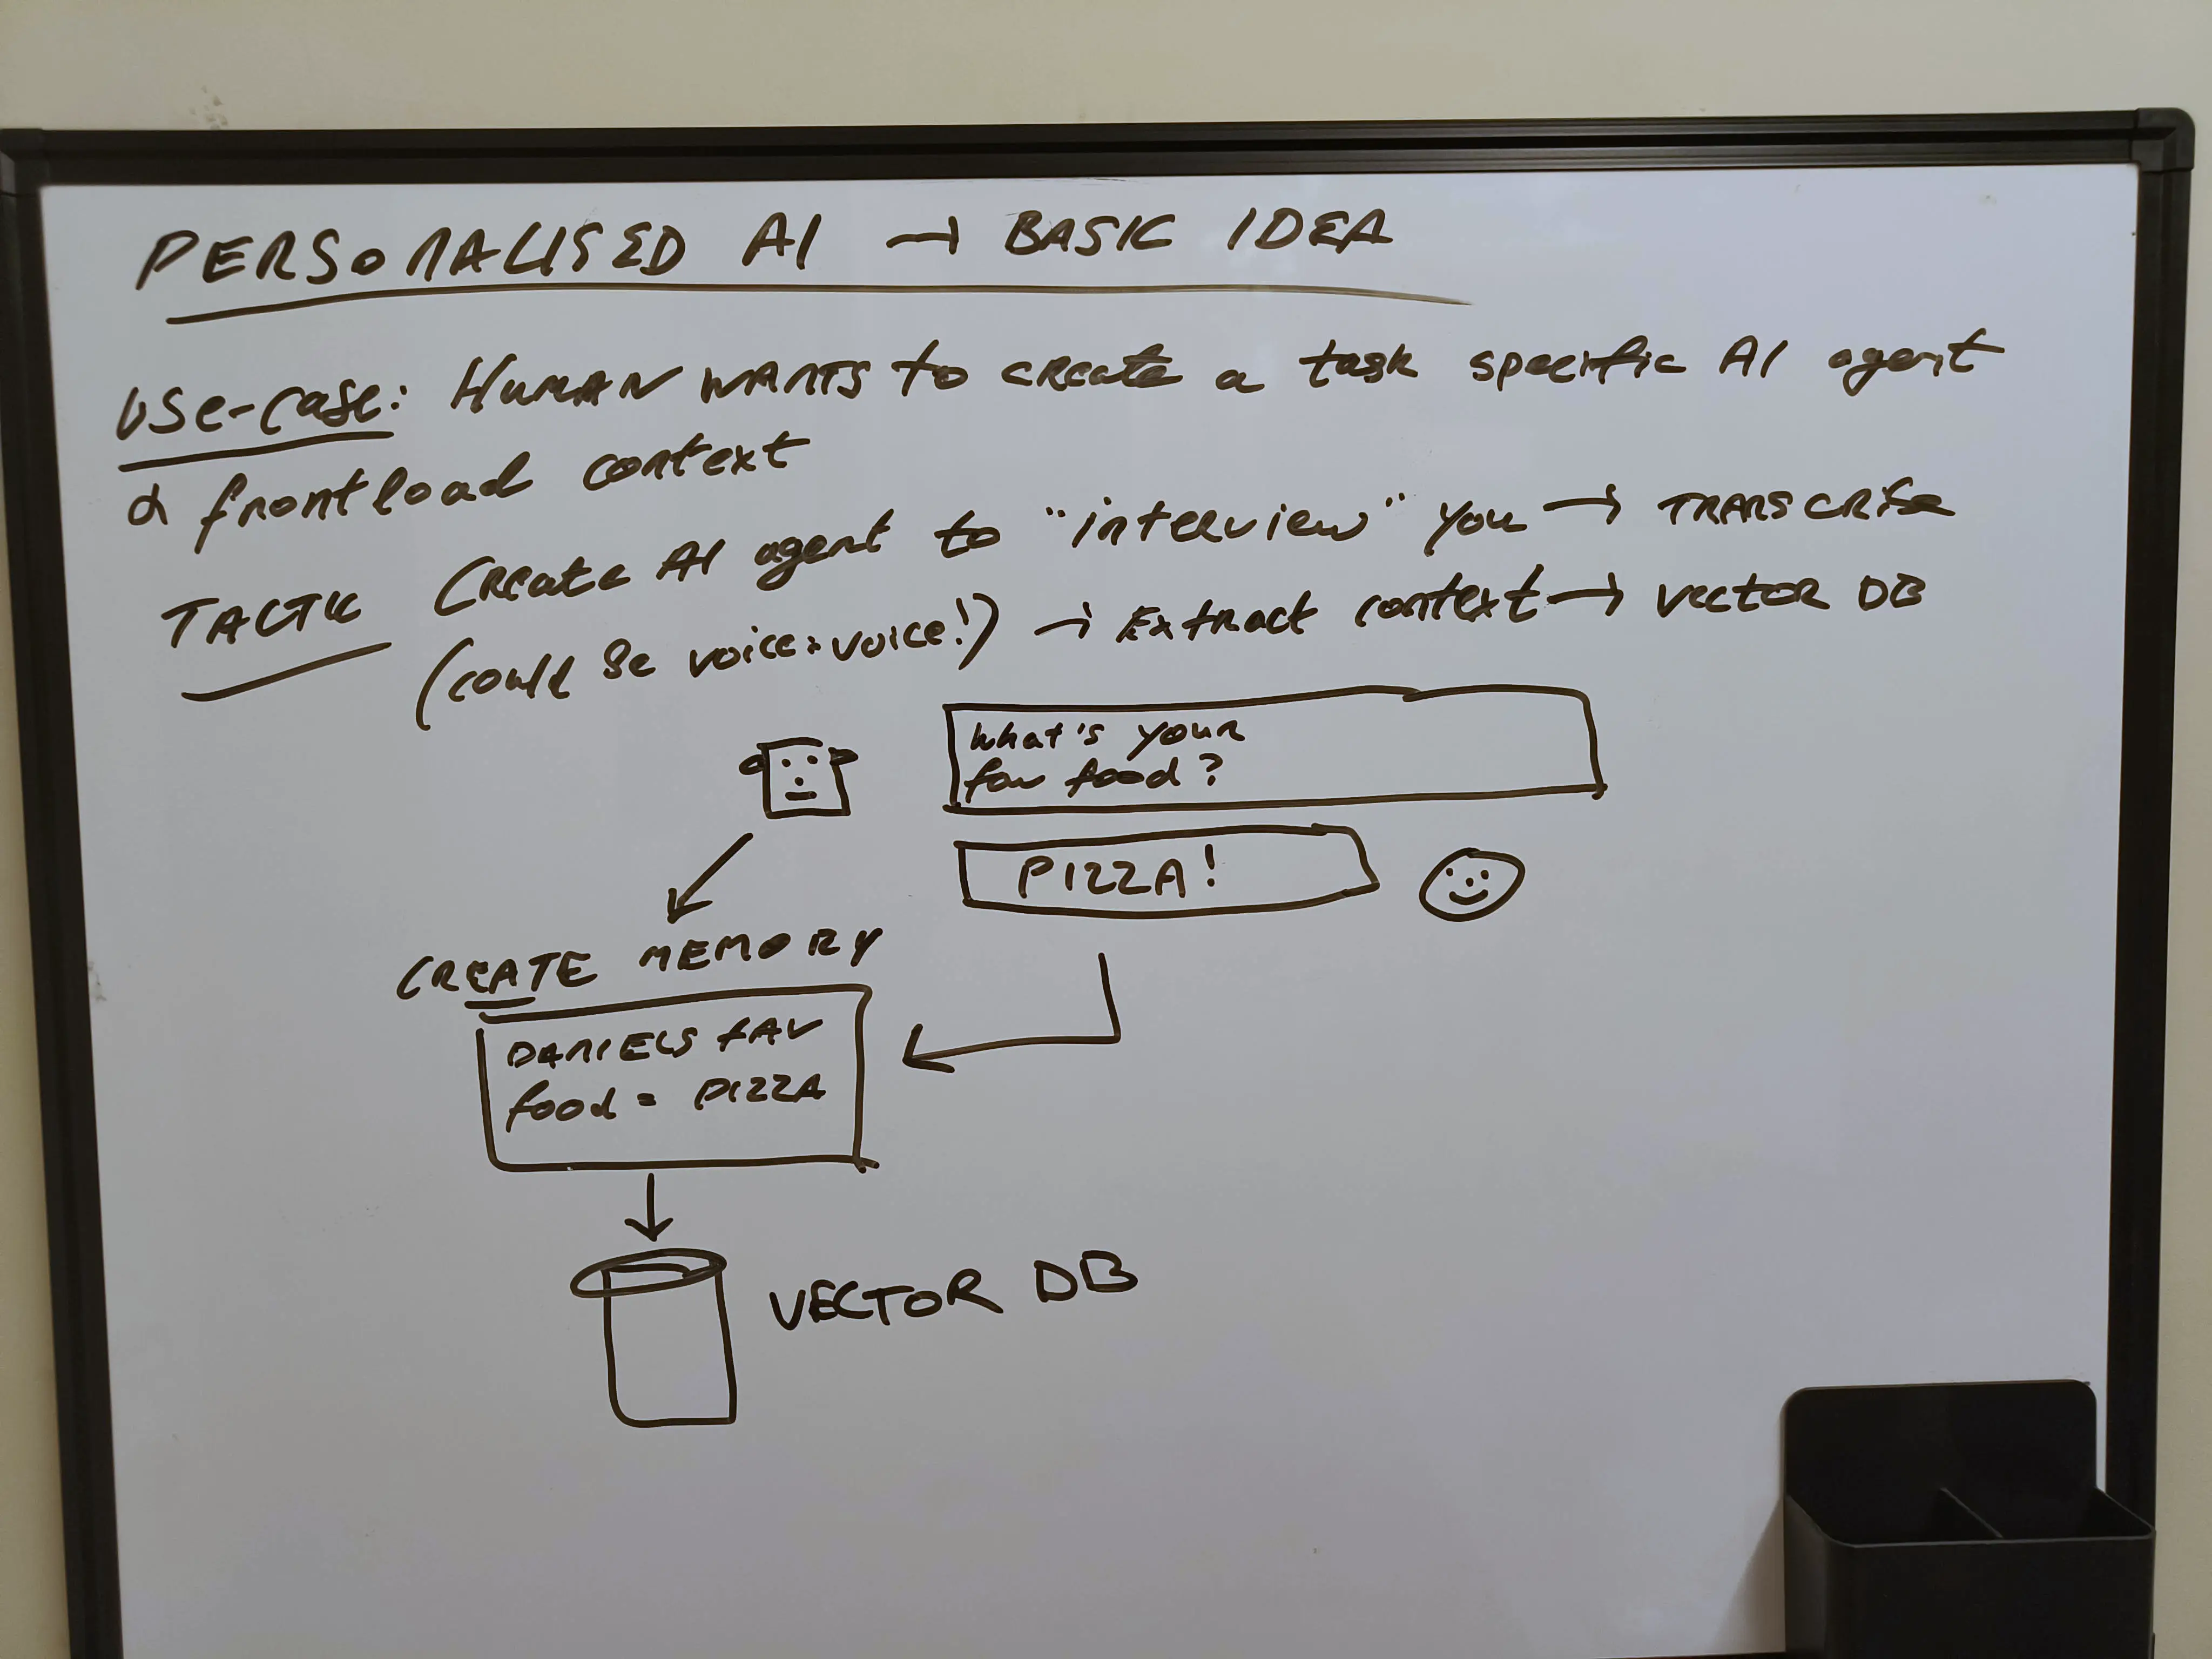 PERSONALISED AI → BASIC IDEA
USE-CASE: HUMAN WANTS to create a task specific AI agent
& frontload context
TACTIC Create AI agent to "interview" you → TRANSCRIBE
(could be voice:voice!) → Extract context → vector DB
What's your
fav food?
PIZZA!
CREATE MEMORY
DANIELS FAV
food = PIZZA
VECTOR DB